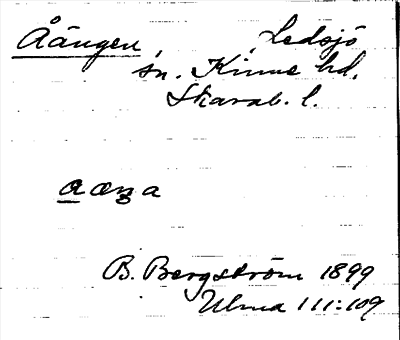 Åängen, Ledsjö
sn. Kinne hd.
Skarab. l.
a æŋa
B. Bergström 1899
Ulma 111:109